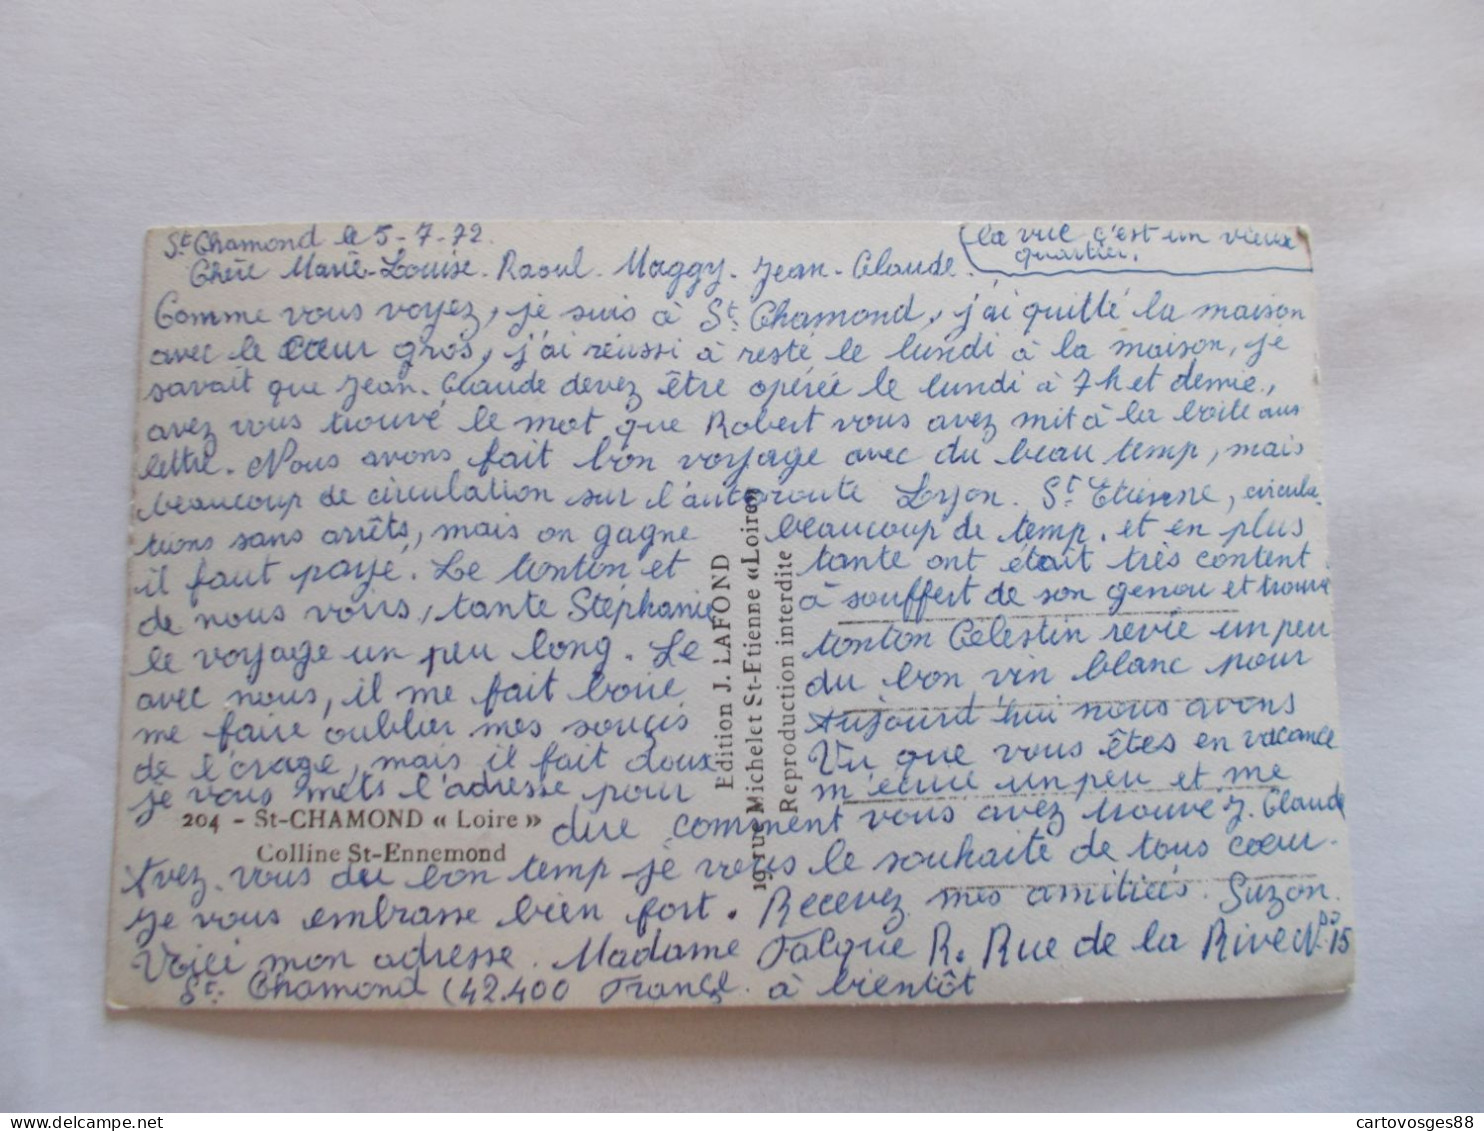 St Chamond le 5-7-72.
(la vue c'est un vieux
quartier.
Chère Marie-Louise. Raoul. Maggy. Jean-Claude.
Comme vous voyez, je suis à St. Chamond, j'ai quitté la maison
avec le cœur gros, j'ai réussi à resté le lundi à la maison, je
savait que Jean-Claude devez être opérée le lundi à 7h et demie,
avez vous trouvé le mot que Robert vous avez mit à la boite aus
lettre. Nous avons fait bon voyage avec du beau temp, mais
beaucoup de circulation sur l'autoroute Lyon. St Etienne, circula
tions sans arrêts, mais on gagne beaucoup de temp, et en plus
il faut payé. Le tonton et tante ont était très content
de nous vois, tante Stéphanie à souffert de son genou et trouve
le voyage un peu long. Le tonton Celestin revie un peu
avec nous, il me fait boire du bon vin blanc pour
me faire oublier mes soucis Aujourd'hui nous avons
de l'orage, mais il fait doux Vu que vous êtes en vacance
je vous mets l'adresse pour m'écrire un peu et me
dire comment vous avez trouvé J. Claude
Avez-vous du bon temp je vous le souhaite de tous cœur.
Je vous embrasse bien fort. Recevez mes amitiés. Suzon.
Voici mon adresse. Madame Falque R. Rue de la Rive No. 15
St. Chamond (42.400 France. à bientôt
204 - St-CHAMOND « Loire »
Colline St-Ennemond
Edition J. LAFOND
19, rue Michelet St-Etienne «Loire»
Reproduction interdite
cartovosges88